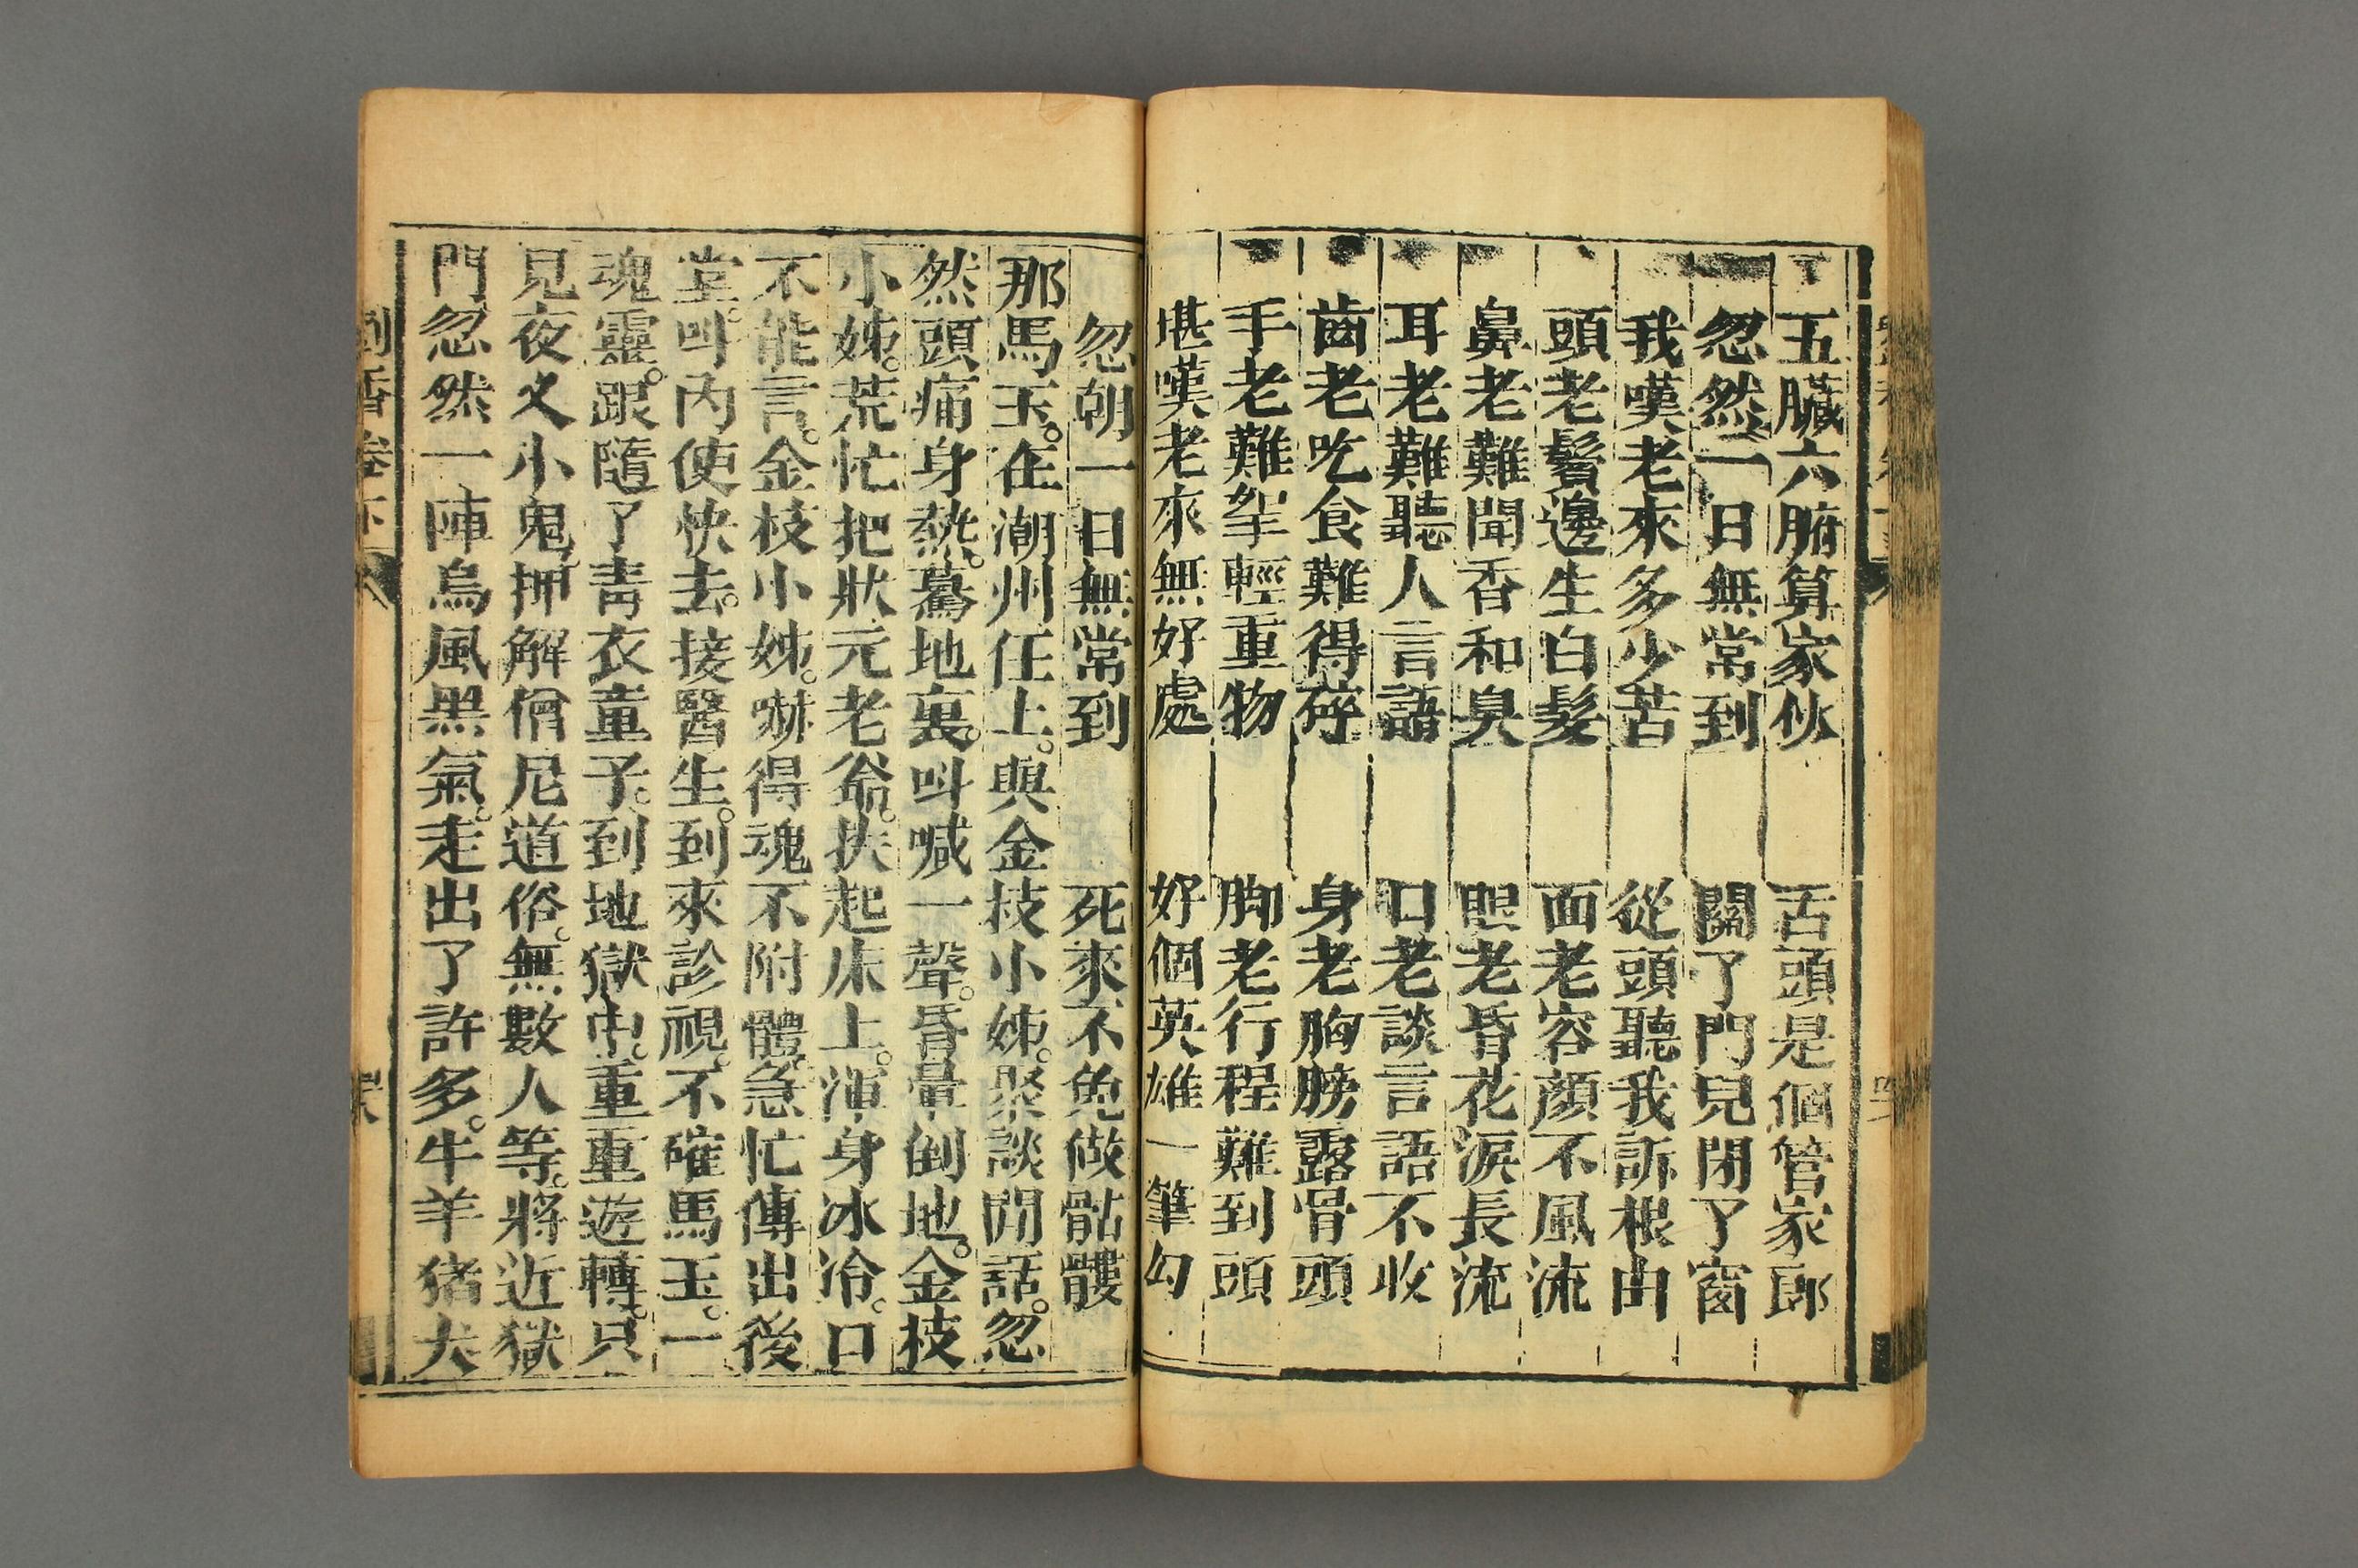 五臟六腑算家伙　舌頭是個管家郎
忽然一日無常到　關了門兒閉了窗
我嘆老來多少苦　從頭聽我訴根由
頭老鬢邊生白髮　面老容顏不風流
鼻老難聞香和臭　眼老昏花淚長流
耳老難聽人言語　口老談言語不收
齒老吃食難得碎　身老胸膀露骨頭
手老難拏輕重物　脚老行程難到頭
堪嘆老來無好處　好個英雄一筆勾
忽朝一日無常到　死來不免做骷髏
那馬玉。在潮州任上。與金枝小姊。聚談閒話。忽
然頭痛身熱。驀地裏。叫喊一聲。昏暈倒地。金枝
小姊。荒忙把狀元老爺。扶起床上。渾身冰冷。口
不能言。金枝小姊。嚇得魂不附體。急忙傳出後
堂。叫內使快去。接醫生。到來診視。不確馬玉。一
魂靈。跟隨了靑衣童子。到地獄中。重重遊轉。只
見夜叉小鬼。押解僧尼道俗。無數人等。將近獄
門。忽然一陣烏風黑氣。走出了許多。牛羊猪犬
劉香卷下